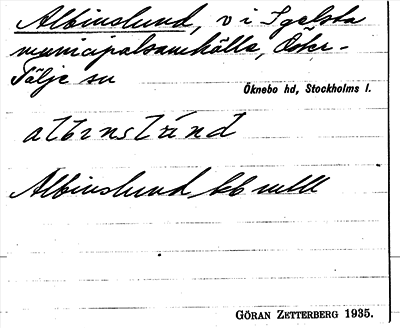 Albinslund, v i Igelsta
municipalsamhälle, Öster-
Tälje sn
Öknebo hd, Stockholms l.
albinslúnd
Albinslund kb
GÖRAN ZETTERBERG 1935.